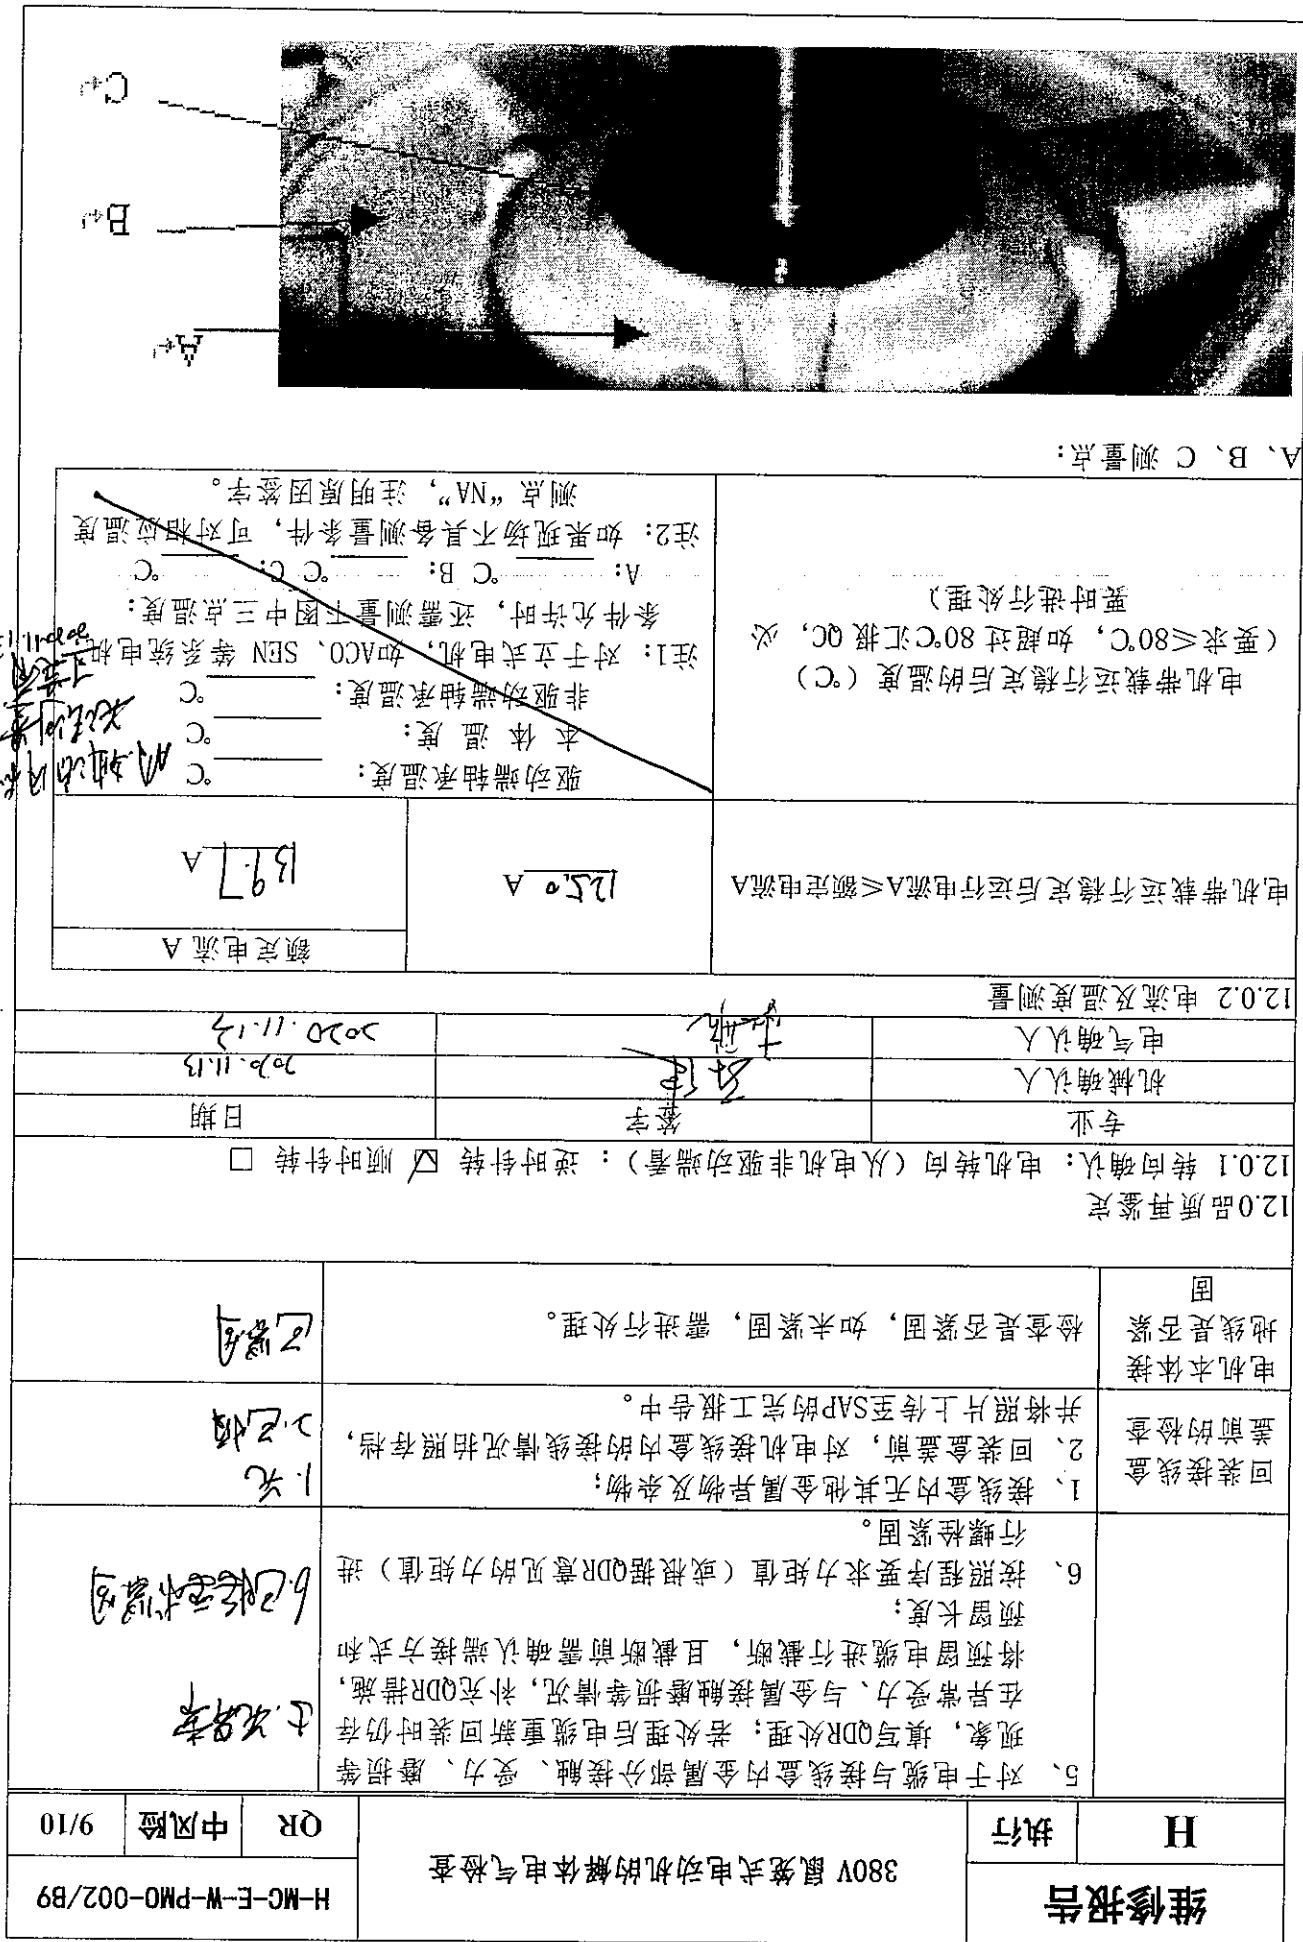 维修报告
380V 鼠笼式电动机的解体电气检查
H-MC-E-W-PMO-002/B9
H
执行
QR
中风险
9/10
5、 对于电缆与接线盒内金属部分接触、受力、磨损等
现象，填写QDR处理；若处理后电缆重新回装时仍存
在异常受力、与金属接触磨损等情况，补充QDR措施，
将预留电缆进行截断，且截断前需确认端接方式和
预留长度；
6、 按照程序要求力矩值（或根据QDR意见的力矩值）进
行螺栓紧固。
5.无异常
6.已按要求紧固
回装接线盒
盖前的检查
1、 接线盒内无其他金属异物及杂物；
2、 回装盒盖前，对电机接线盒内的接线情况拍照存档，
并将照片上传至SAP的完工报告中。
1.无
2.已
电机本体接
地线是否紧
固
检查是否紧固，如未紧固，需进行处理。
已紧固
12.0品质再鉴定
12.0.1 转向确认： 电机转向（从电机非驱动端看）： 逆时针转 ☑ 顺时针转 □
专业
签字
日期
机械确认人
2020.11.13
电气确认人
2020.11.13
12.0.2 电流及温度测量
电机带载运行稳定后运行电流A≤额定电流A
125.0 A
额定电流 A
139.7 A
电机带载运行稳定后的温度（℃）
（要求≤80℃，如超过 80℃汇报 QC，必
要时进行处理）
驱动端轴承温度： ℃
本 体 温 度： ℃
非驱动端轴承温度： ℃
注1： 对于立式电机，如ACO、SEN 等系统电机
条件允许时，还需测量下图中三点温度：
A： ℃ B： ℃ C： ℃
注2： 如果现场不具备测量条件，可对相应温度
测点 “NA”，注明原因签字。
无法测量
A、B、C 测量点：
A
B
C